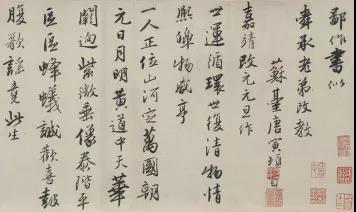 鄙作書似
舜承老弟改教
蘇臺唐寅頓首
嘉靖改元元旦作
世運循環世復清物情
熙皞物咸亨
一人正位山河定萬國朝
元日月明黃道中天華
闕迥紫微垂像泰階平
區區蜂蟻誠歡喜鼓
腹歌謠竟此生